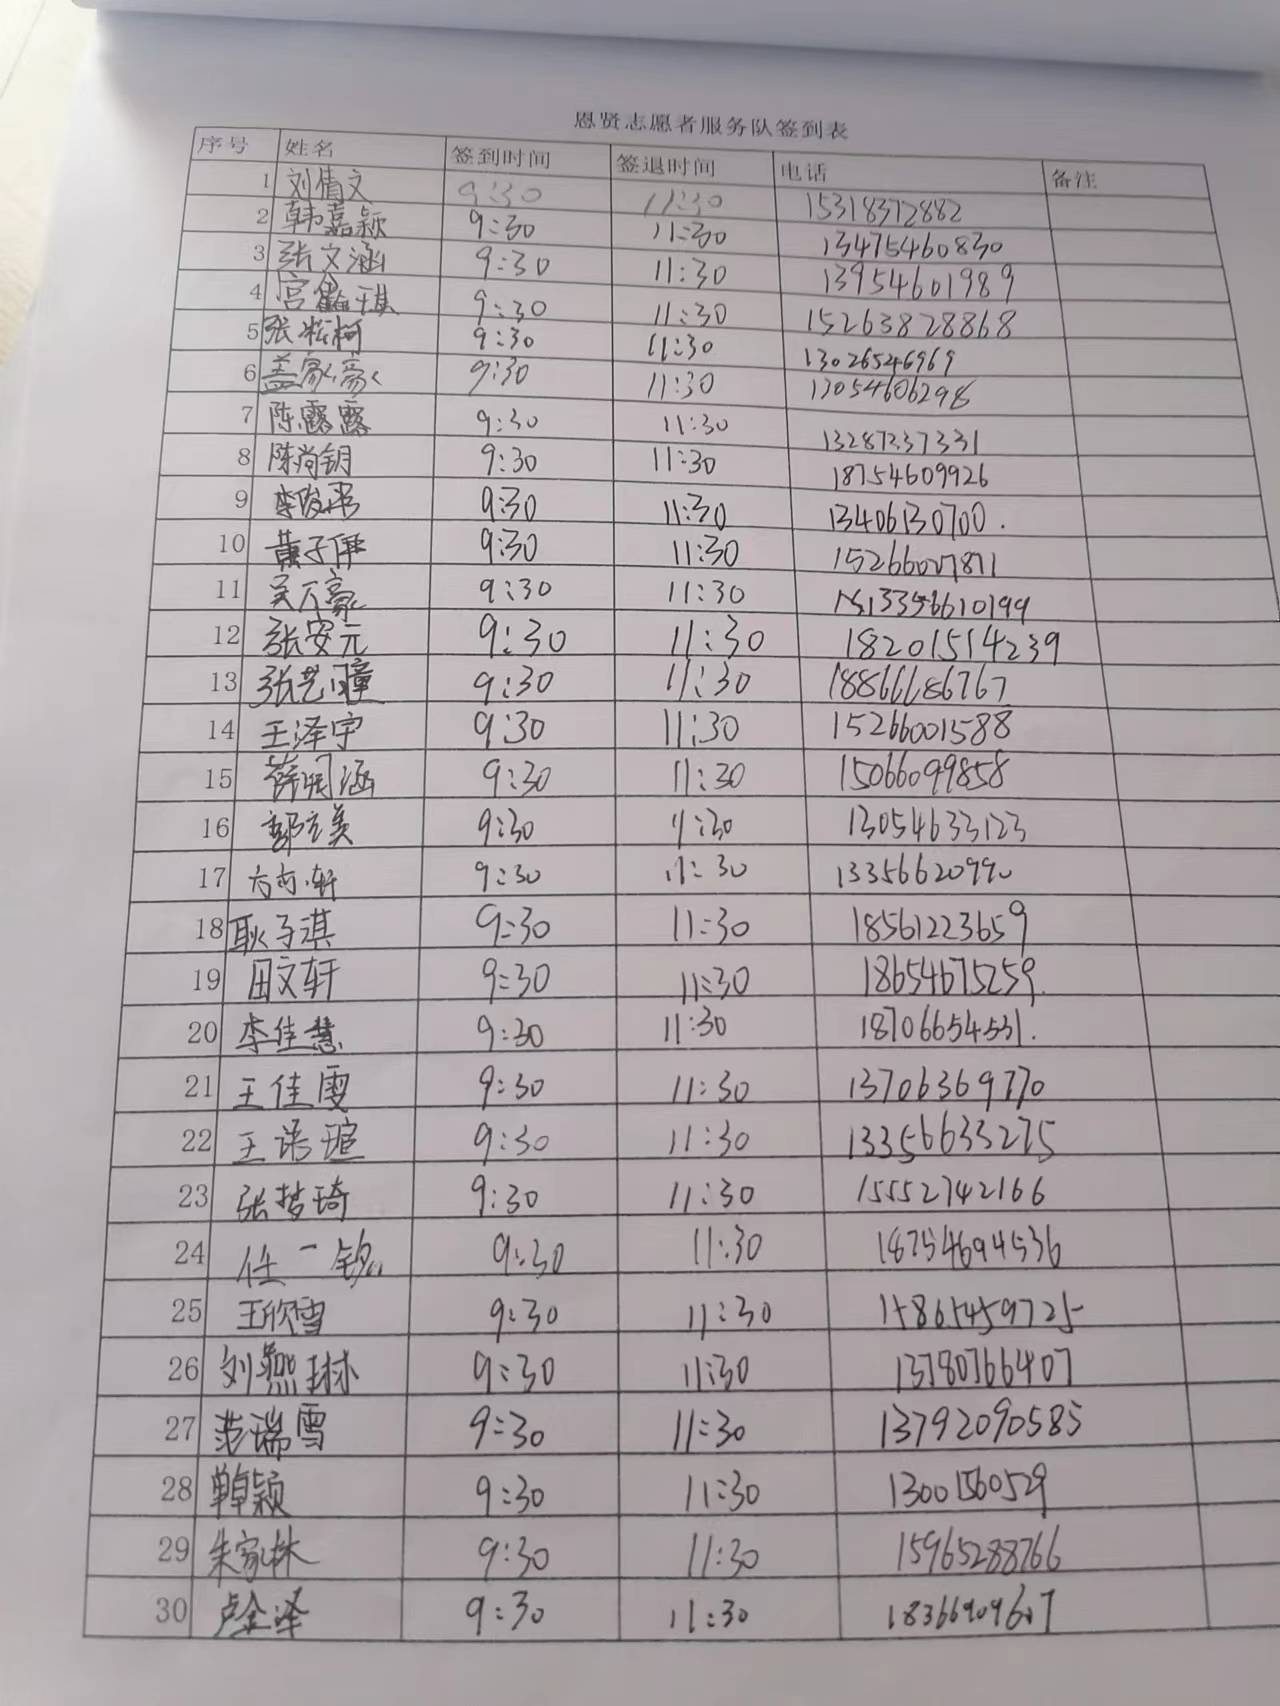 恩贤志愿者服务队签到表
序号 姓名 签到时间 签退时间 电话 备注
1 刘倩文 9:30 11:30 15318372882
2 韩嘉颖 9:30 11:30 13475460830
3 张文涵 9:30 11:30 13954601989
4 宫 琪 9:30 11:30 15263828868
5 张崧柯 9:30 11:30 13026546969
6 盖豪豪 9:30 11:30 13054606298
7 陈露露 9:30 11:30 13287237331
8 陈尚钥 9:30 11:30 18754609926
9 李俊彤 9:30 11:30 13406130700.
10 黄子伊 9:30 11:30
11 吴万豪 9:30 11:30
12 张安元 9:30 11:30 18201514239
13 张艺曈 9:30 11:30 18866686767
14 王泽宇 9:30 11:30 15266001588
15 薛润涵 9:30 11:30 15066099858
16 美 9:30 11:30 13054633123
17 9:30 11:30 13356620990
18 耿子淇 9:30 11:30 18561223659
19 田文轩 9:30 11:30 18654675259.
20 李佳慧 9:30 11:30 18706654531.
21 王佳雯 9:30 11:30 13706369770
22 王语瑄 9:30 11:30 13356633275
23 张梦琦 9:30 11:30 15552742166
24 任一铭 9:30 11:30 18754694536
25 王欣雪 9:30 11:30 15865459725
26 刘燕琳 9:30 11:30 13780766407
27 范瑞雪 9:30 11:30 13792090585
28 单颖 9:30 11:30 13001560529
29 朱家林 9:30 11:30 15965288766
30 卢金泽 9:30 11:30 18366909607